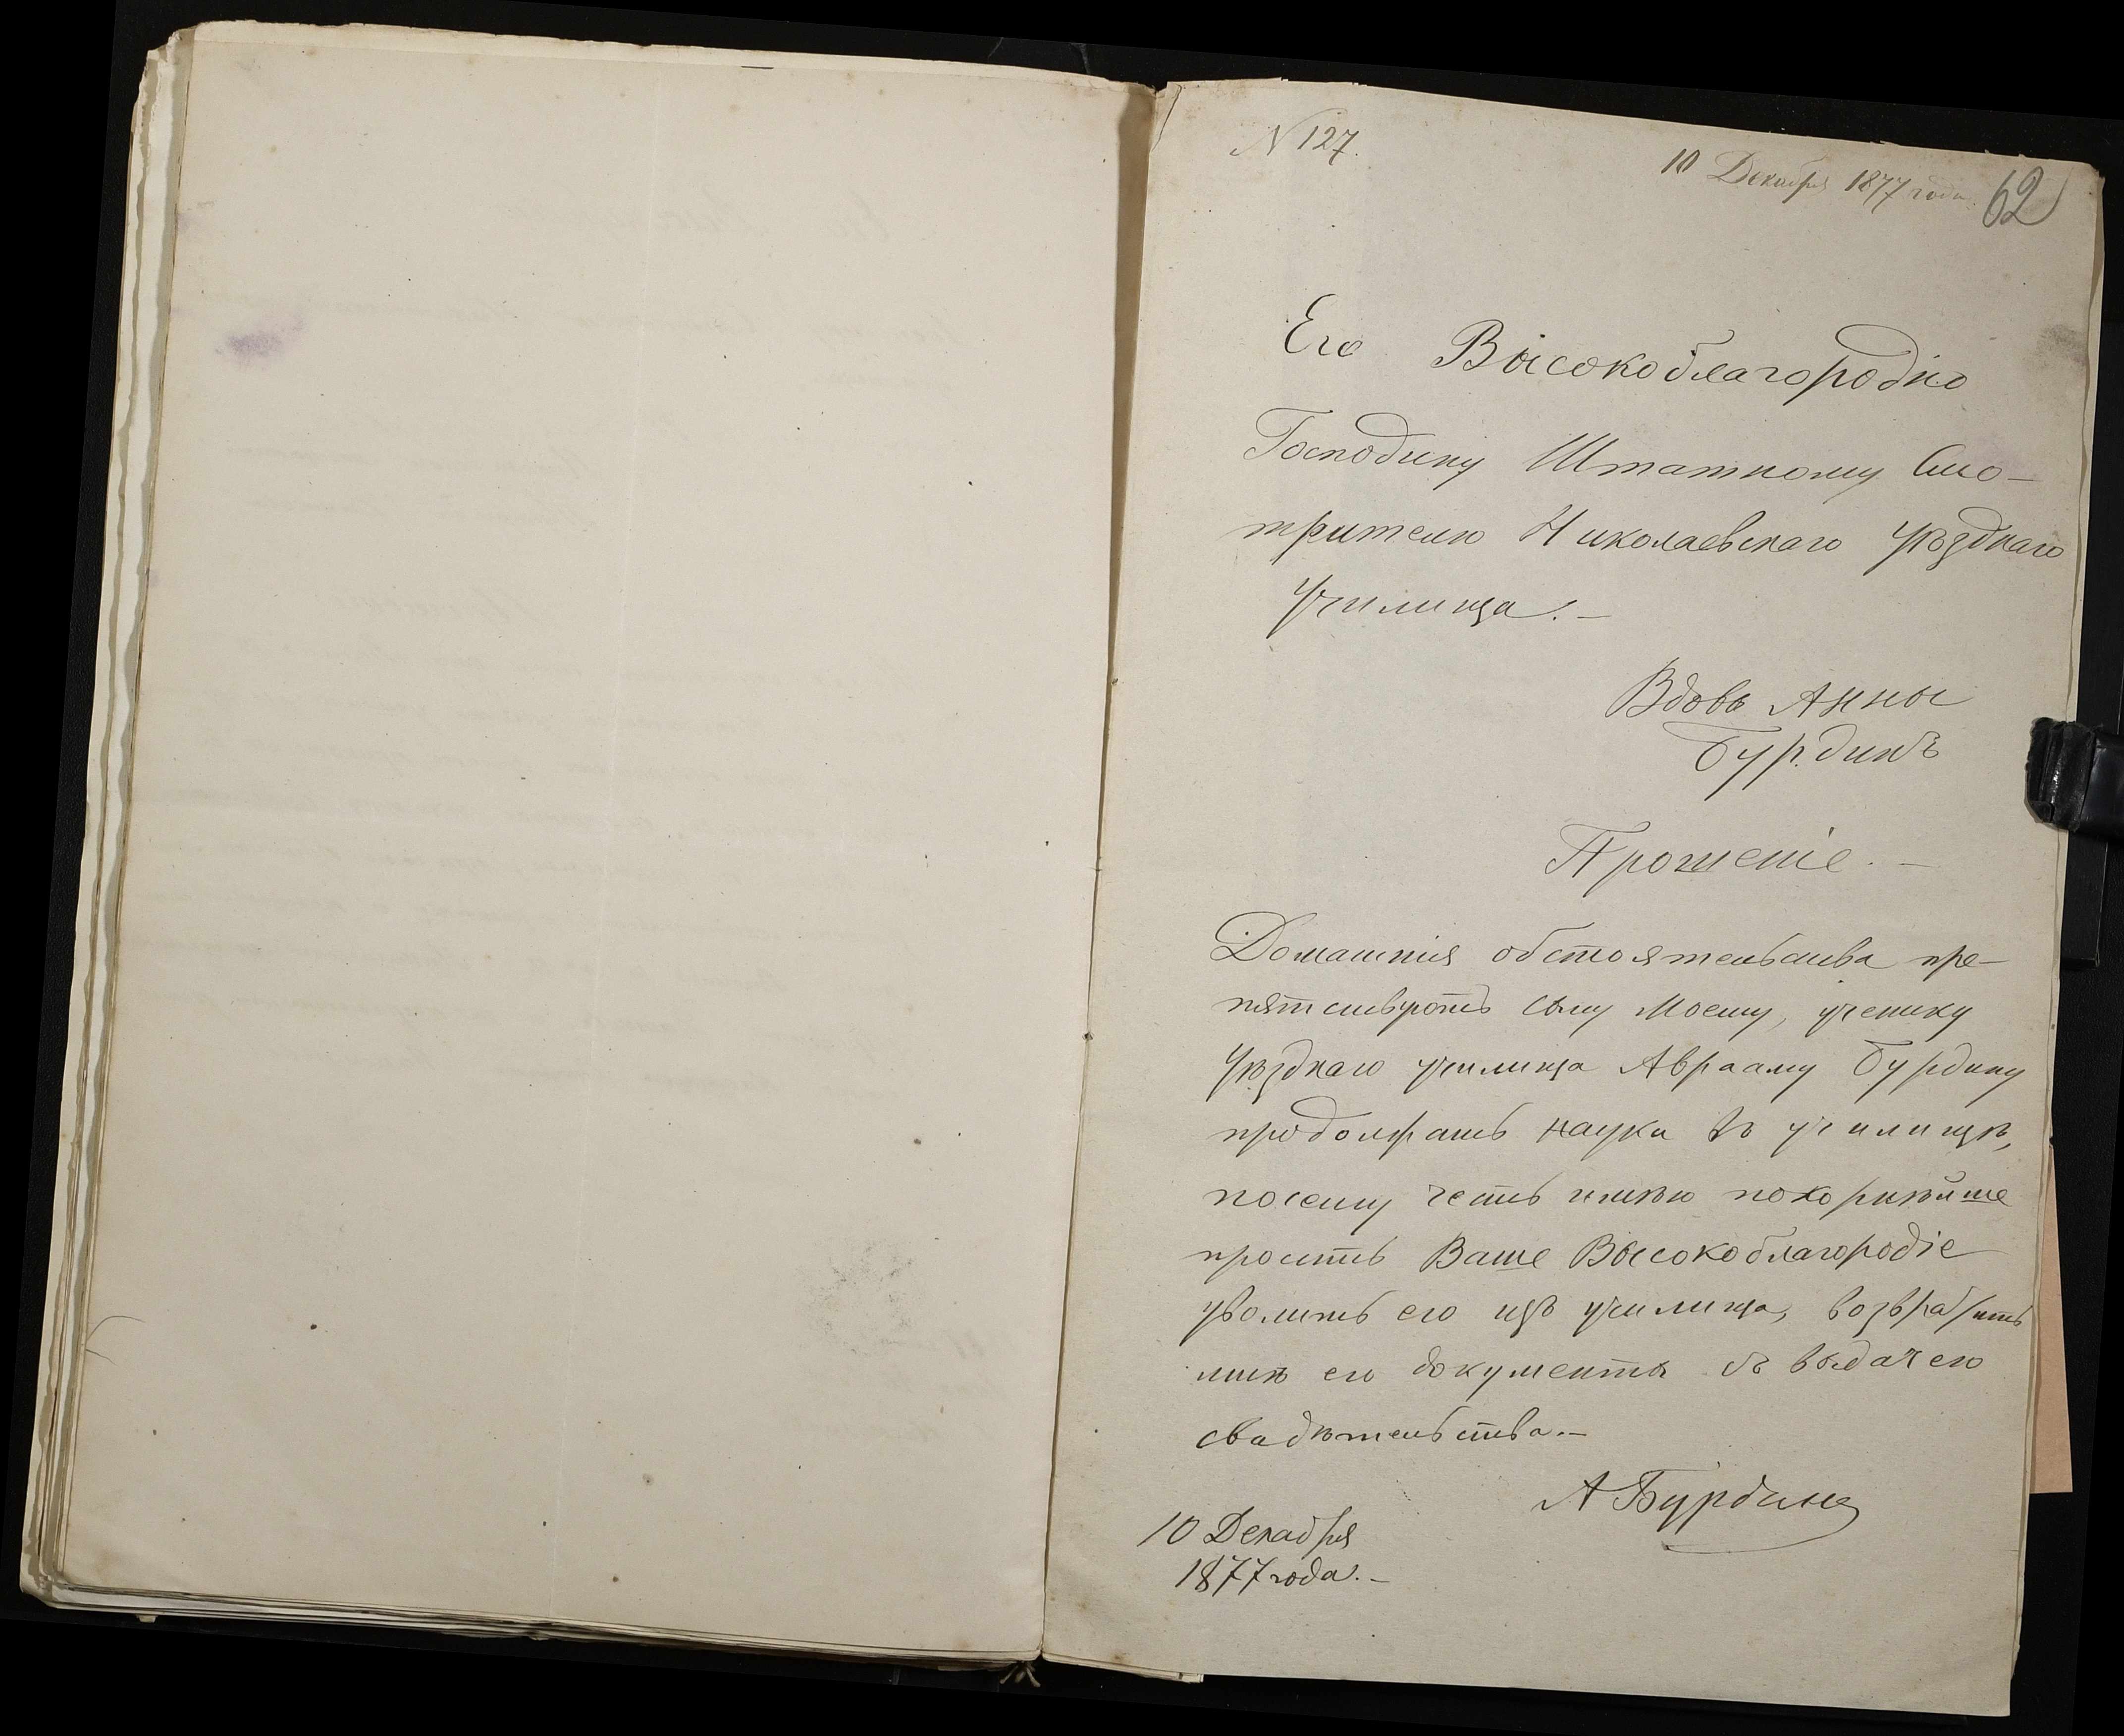 N 127.
10 Декабря 1877 года.
62
Его Высокоблагородію
Господину Штатному Смо-
трителю Николаевскаго Уѣзднаго
Училища.-
Вдовы Анны
Бурдинъ
Прошеніе.-
Домашнія обстоятельства пре-
пятствуютъ сыну Моему, ученику
Уѣзднаго училища Аврааму Бурдину
продолжать науки въ училищѣ,
посему честь имѣю покорнѣйше
просить Ваше Высокоблагородіе
уволить его изъ училища, возвратить
мнѣ его документы съ выдачею
свидѣтельства.-
А Бурдина
10 Декабря
1877 года.-